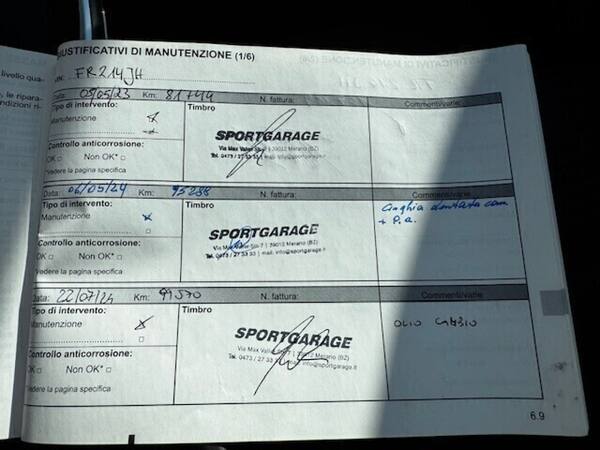 GIUSTIFICATIVI DI MANUTENZIONE (1/6)
livello qua-
VIN: FR214JH
le ripara-
ndizioni ri-
Data: 05/05/23 Km: 81744 N. fattura: Commenti/varie:
Tipo di intervento: Timbro
Manutenzione
SPORTGARAGE
Via Max Valier Str. 7 | 39012 Merano (BZ)
Tel. 0473 / 27 33 33 | mail: info@sportgarage.it
Controllo anticorrosione:
OK □ Non OK* □
*Vedere la pagina specifica
Data: 06/05/24 Km: 95288 N. fattura: Commenti/varie:
Tipo di intervento: Timbro Cinghia dentata com
Manutenzione + P.a.
SPORTGARAGE
Via Max Valier Str. 7 | 39012 Merano (BZ)
Tel. 0473 / 27 33 33 | mail: info@sportgarage.it
Controllo anticorrosione:
OK □ Non OK* □
*Vedere la pagina specifica
Data: 22/07/24 Km: 99570 N. fattura: Commenti/varie:
Tipo di intervento: Timbro
Manutenzione OLIO CAMBIO
SPORTGARAGE
Via Max Valier Str. 7 | 39012 Merano (BZ)
Tel. 0473 / 27 33 33 | mail: info@sportgarage.it
Controllo anticorrosione:
OK □ Non OK* □
*Vedere la pagina specifica
6.9